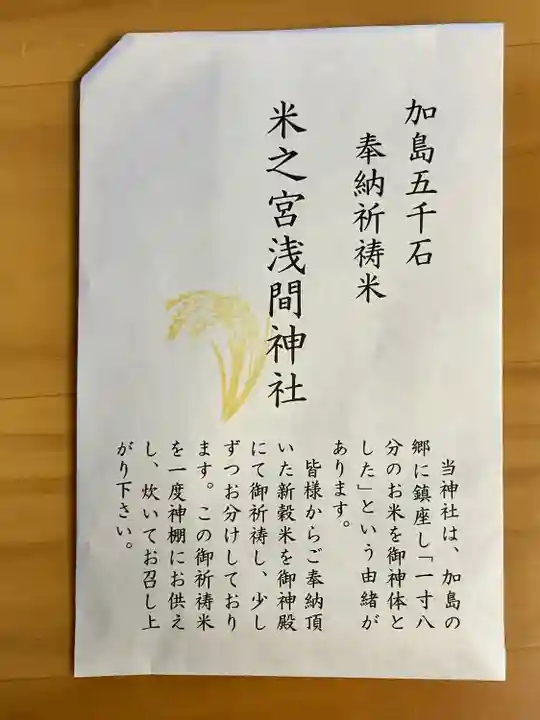 加島五千石
奉納祈祷米
米之宮浅間神社
当神社は、加島の
郷に鎮座し「一寸八
分のお米を御神体と
した」という由緒が
あります。
皆様からご奉納頂
いた新穀米を御神殿
にて御祈祷し、少し
ずつお分けしており
ます。この御祈祷米
を一度神棚にお供え
し、炊いてお召し上
がり下さい。